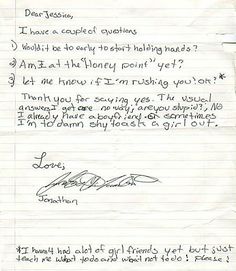 Dear Jessica,
I have a couple of questions
1) Would it be to early to start holding hands?
2) Am I at the "Honey point" yet?
3) let me know if I'm rushing you! ok? *
Thank you for saying yes. The usual
answers I get are no way, are you stupid?, NO
I already have a boyfriend. Or sometimes
I'm to damn shy to ask a girl out.
Love,
Jonathan
* I haven't had alot of girl friends yet but just
teach me what to do and what not to do! please!